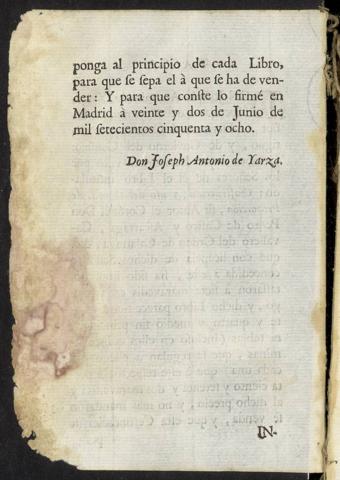 ponga al principio de cada Libro,
para que se sepa el à que se ha de ven-
der: Y para que conste lo firmé en
Madrid à veinte y dos de Junio de
mil setecientos cinquenta y ocho.
Don Joseph Antonio de Yarza.
IN-